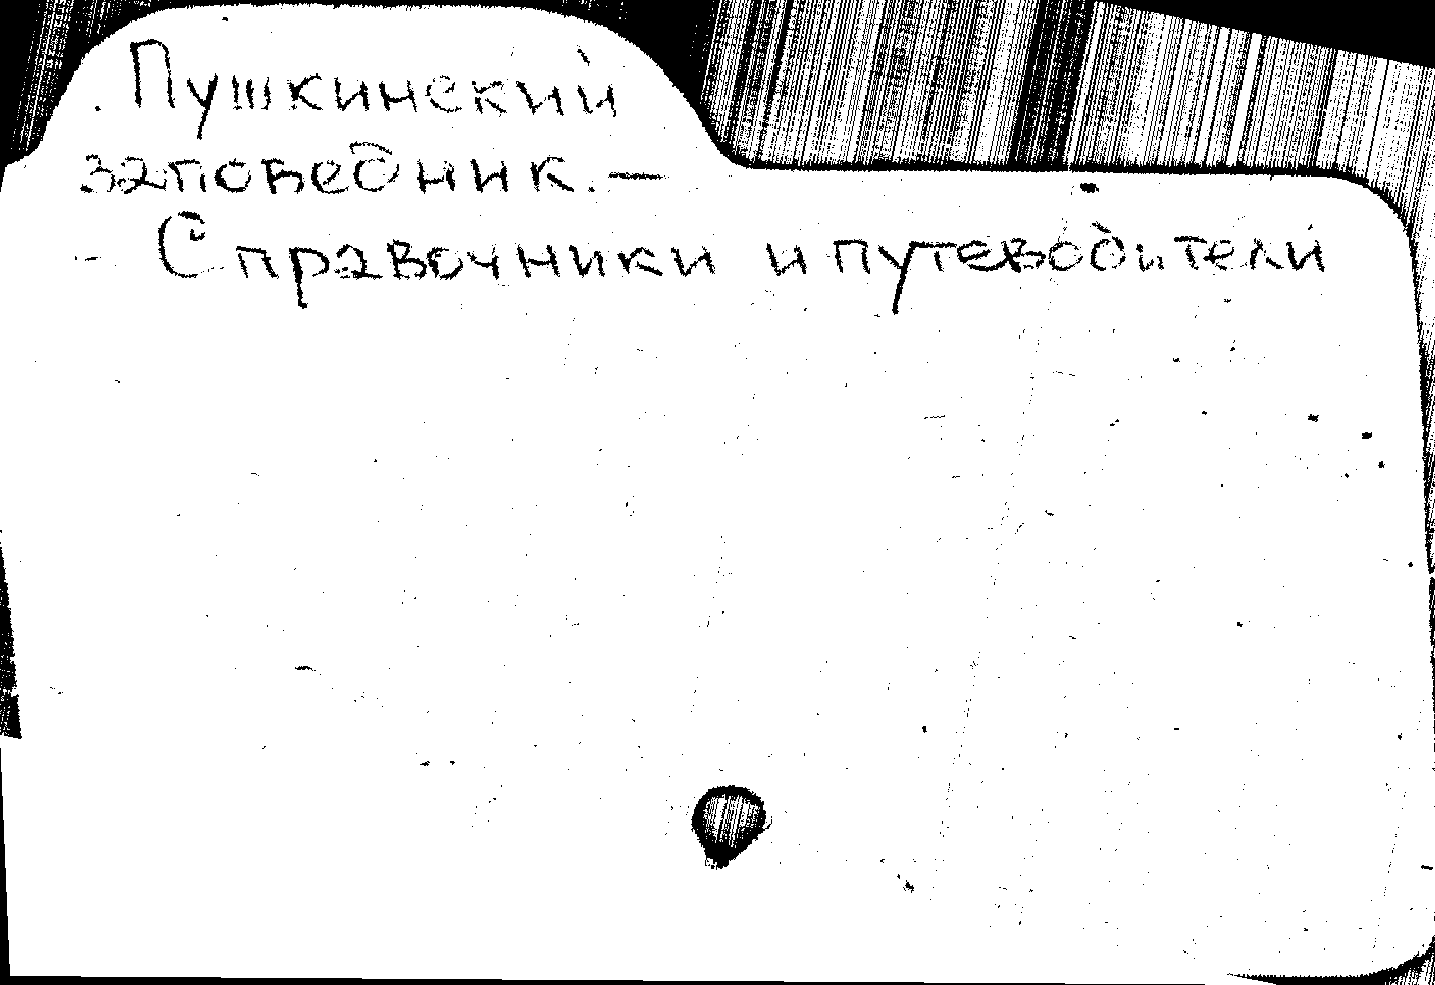 Пушкинский
заповедник. —
- Справочники и путеводители